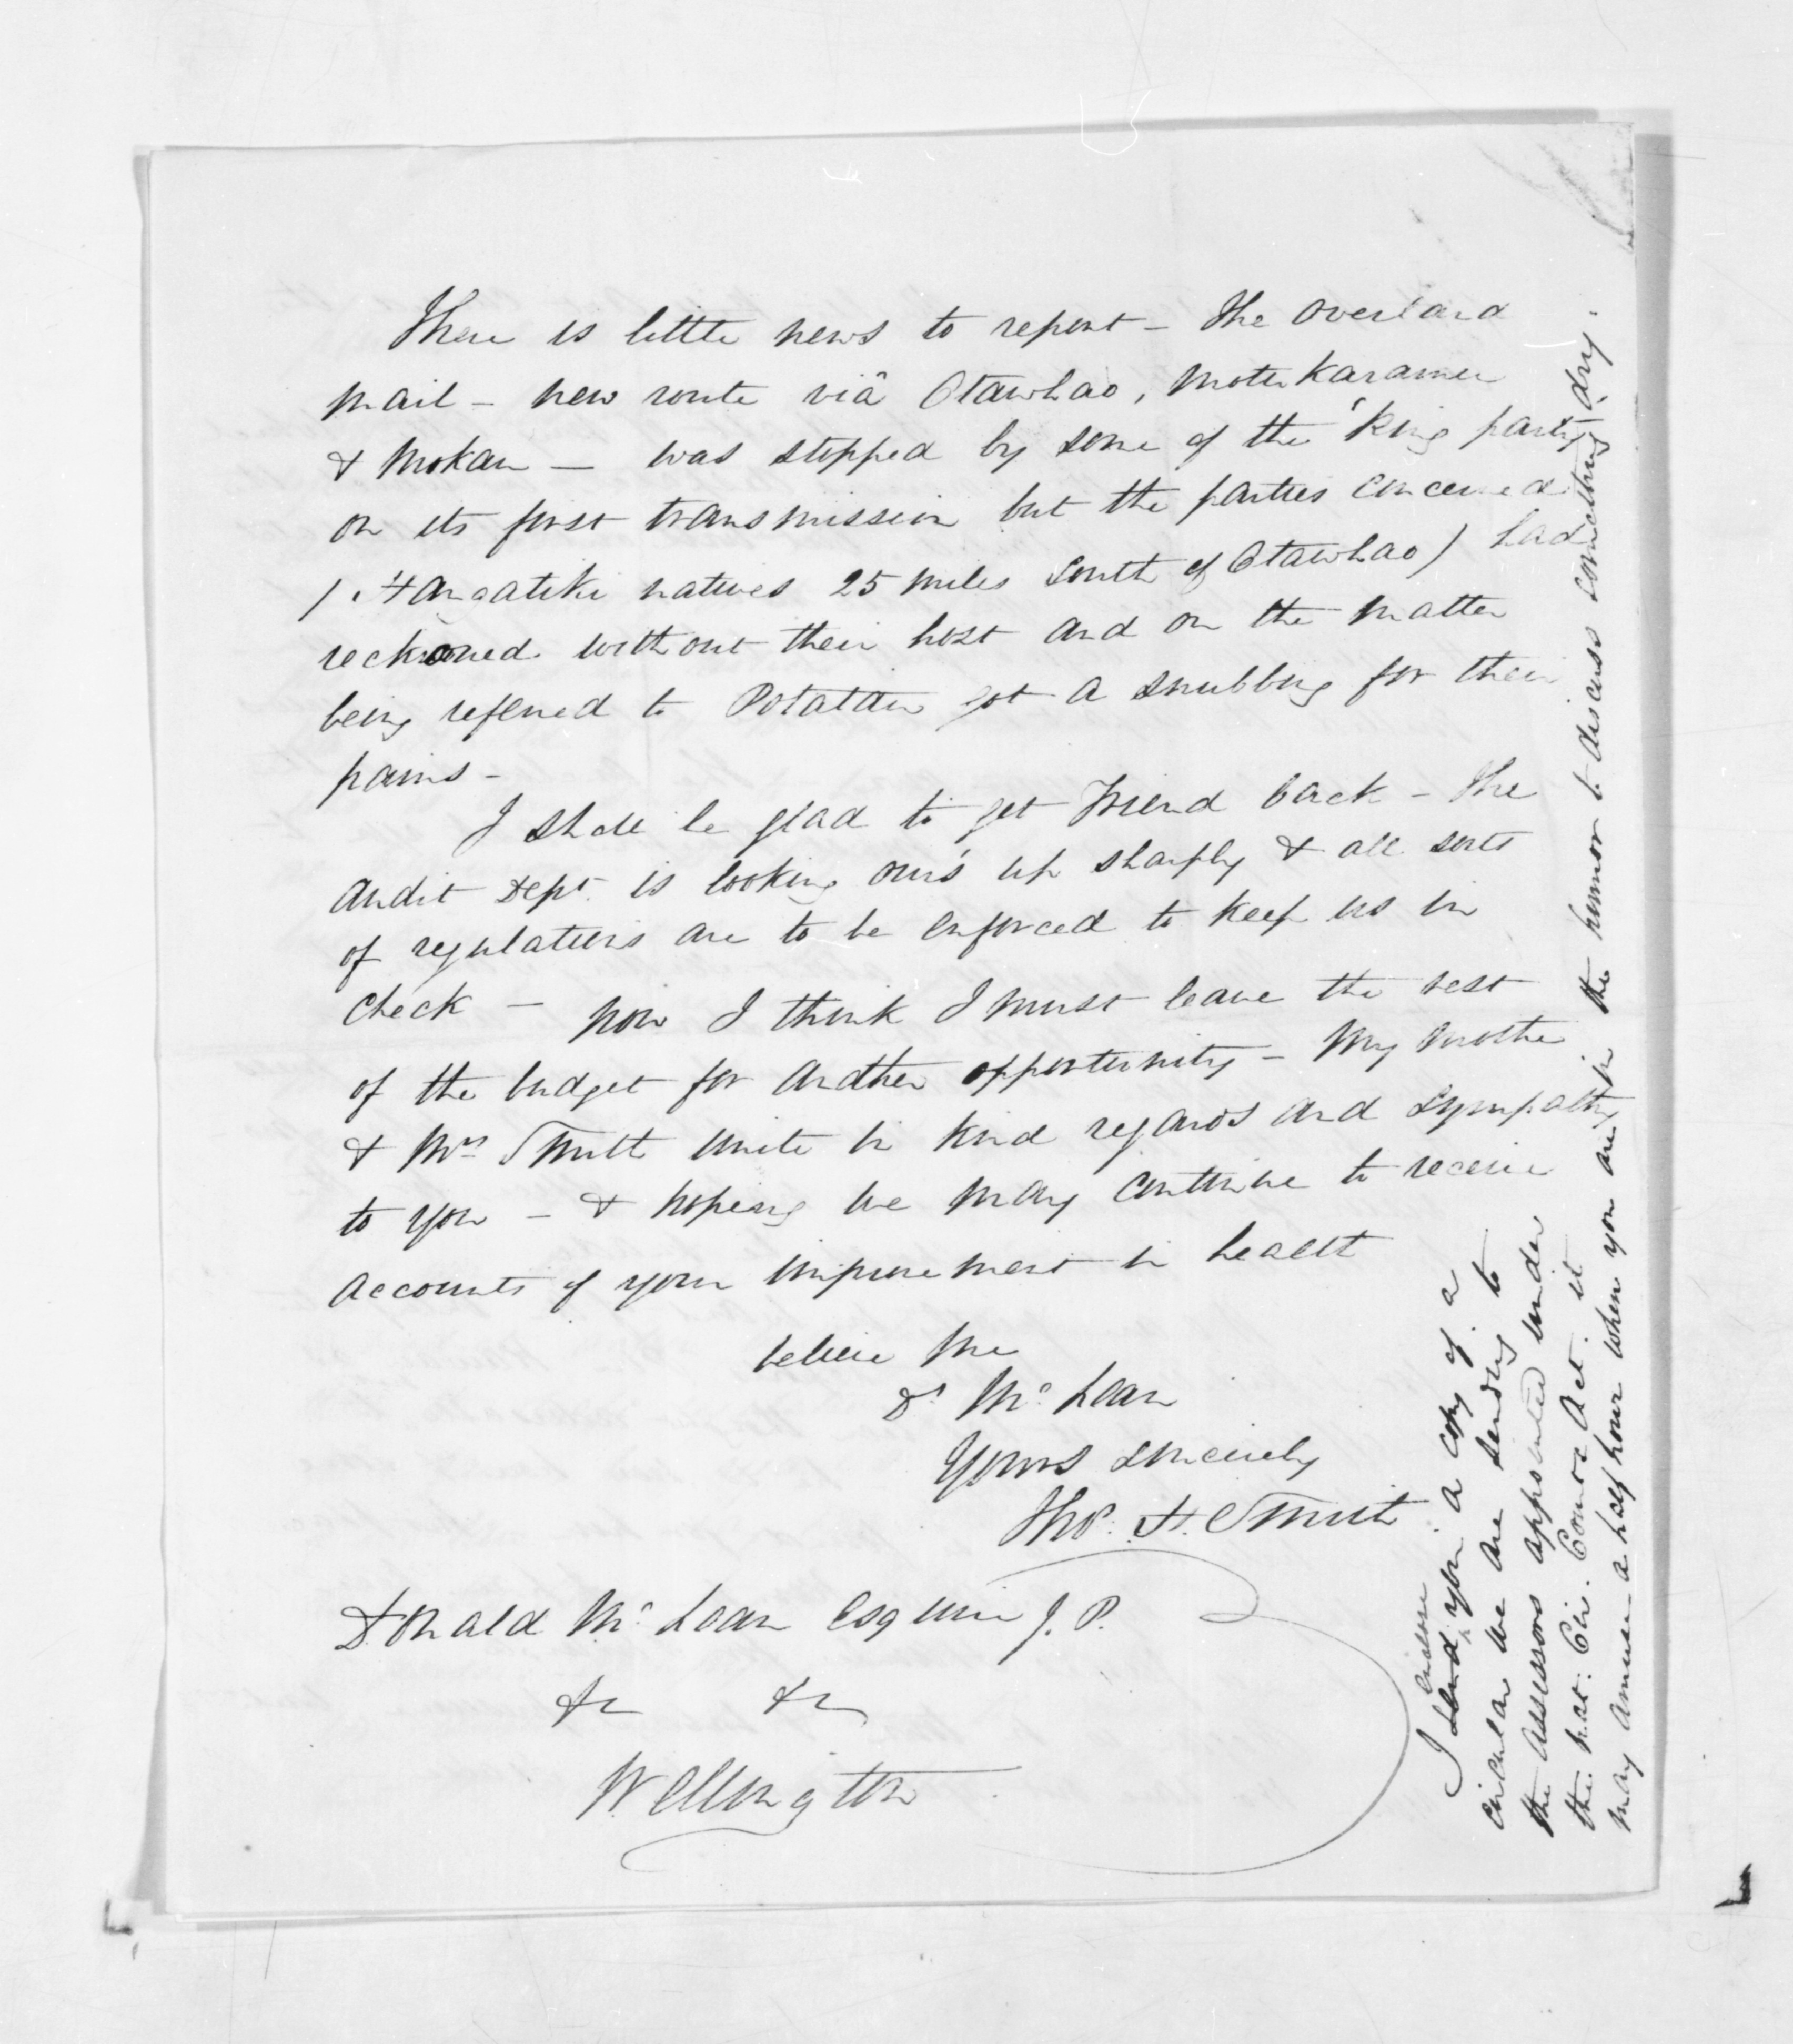 There is little news to report - The overland
mail - new route viâ Otawhao, Motukaramu
& Mokau - was stopped by some of the 'King party'
on its first transmission but the parties concerned
(Hangatiki natives 25 miles South of Otawhao) had
reckoned without their host and on the matter
being referred to Potatau got a snubbing for their
pains -
I shall be glad to get Friend back - The
Audit Dept. is looking ours up sharply & all sorts
of regulations are to be enforced to keep us in
check - now I think I must leave the rest
of the budget for another opportunity - My mother
& Mrs Smith unite in kind regards and sympathy
to you - & hoping we may continue to receive
accounts of your improvement in health
believe me
Dr McLean
Yours sincerely
Thos. H. Smith
Donald McLean Esquire J.P.
&c &c
Wellington
enclose
I send you a copy of a
circular we are sending to
the assessors appointed under
the Nat: Cir. Courts Act. it
may amuse a half hour when you are in the humor to discuss something dry.